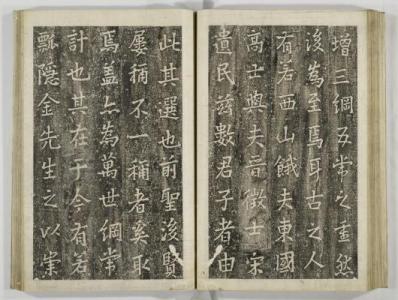 增三綱五常之重然
後為至焉耳古之人
有若西山餓夫東國
高士與夫晉徵士宋
遺民玆數君子者由
此其選也前聖後賢
屢稱不一稱者奚取
焉盖亦為萬世綱常
計也其在于今有若
瓢隱金先生之以崇